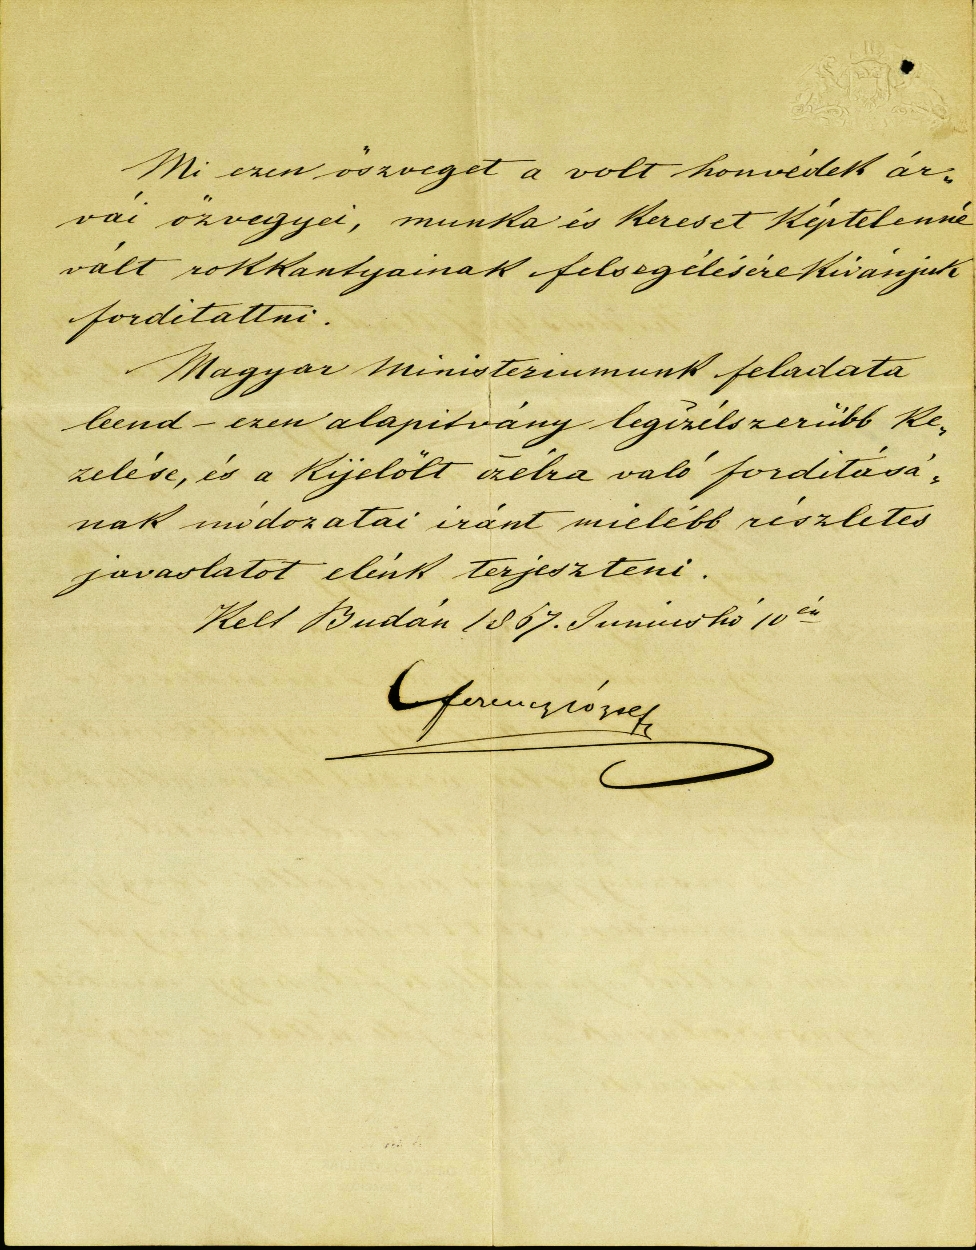 Mi ezen öszveget a volt honvédek ár-
vái özvegyei, munka és kereset képtelenné
vált rokkantyainak felsegélésére kivánjuk
fordítattni.
Magyar Ministeriumunk feladata
leend – ezen alapitvány legczélszerübb ke-
zelése, és a kijelölt czélra való forditásá-
nak módozatai iránt mielébb részletes
javaslatot elénk terjeszteni.
Kelt Budán 1867. Juniushó 10én
Ferencz József